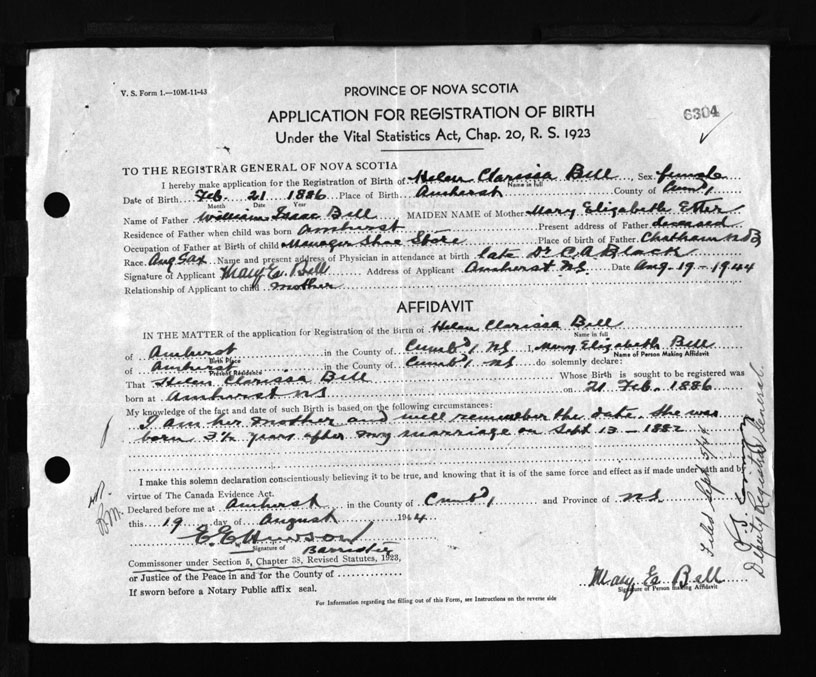 V. S. Form 1.—10M-11-43
PROVINCE OF NOVA SCOTIA
APPLICATION FOR REGISTRATION OF BIRTH
6304
Under the Vital Statistics Act, Chap. 20, R. S. 1923
TO THE REGISTRAR GENERAL OF NOVA SCOTIA
I hereby make application for the Registration of Birth of Helen Clarissa Bell, Sex female
Name in full
Date of Birth Feb. 21 1886 Place of Birth Amherst County of Cumb'd
Month Date Year
Name of Father William Isaac Bell MAIDEN NAME of Mother Mary Elizabeth Etter
Residence of Father when child was born Amherst Present address of Father deceased
Occupation of Father at Birth of child Manager Shoe Store Place of birth of Father Chatham N.B.
Race Ang Sax Name and present address of Physician in attendance at birth late Dr. C. A. Black
Signature of Applicant Mary E. Bell Address of Applicant Amherst NS Date Aug-19-1944
Relationship of Applicant to child mother
AFFIDAVIT
IN THE MATTER of the application for Registration of the Birth of Helen Clarissa Bell
Name in full
of Amherst in the County of Cumb'd, NS I, Mary Elizabeth Bell
Birth Place Name of Person Making Affidavit
of Amherst in the County of Cumb'd, NS do solemnly declare:
Present Residence
That Helen Clarissa Bell Whose Birth is sought to be registered was
born at Amherst NS on 21 Feb. 1886
My knowledge of the fact and date of such Birth is based on the following circumstances:
I am her mother and well remember the date. She was
born 3½ years after my marriage on Sept 13-1882
I make this solemn declaration conscientiously believing it to be true, and knowing that it is of the same force and effect as if made under oath and by
virtue of The Canada Evidence Act.
Declared before me at Amherst in the County of Cumb'd, and Province of NS
this 19 day of August 1944
Signature of Barrister
Commissioner under Section 5, Chapter 38, Revised Statutes, 1923,
or Justice of the Peace in and for the County of
If sworn before a Notary Public affix seal.
Mary E. Bell
Signature of Person making Affidavit
For Information regarding the filling out of this Form, see Instructions on the reverse side
Filed Sept 5/44
Deputy Registrar General